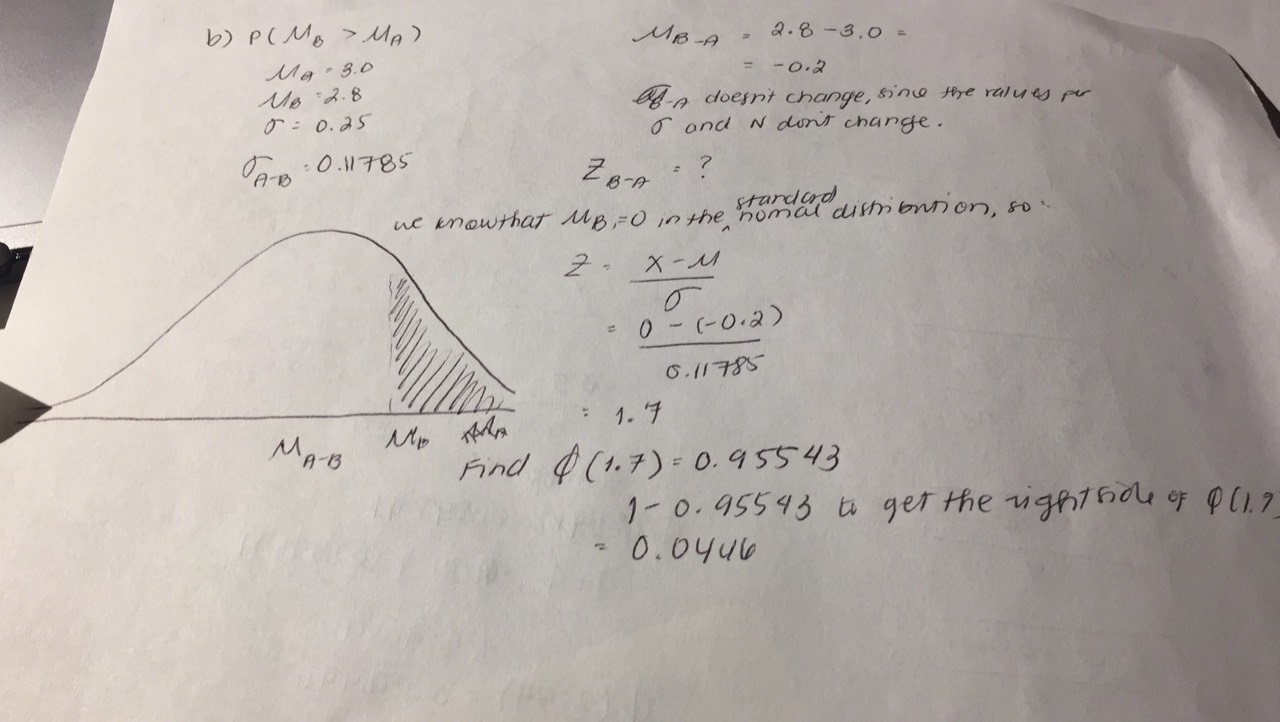 b) P(μ_B > μ_A)
μ_A = 3.0
μ_B = 2.8
σ = 0.25
σ_A-B = 0.11785
μ_B-A = 2.8 - 3.0 =
= -0.2
doesn't change, since the values per
σ and N don't change.
Z_B-A = ?
we know that μ_B,=0 in the standard normal distribution, so:
Z = (x - μ) / σ
= (0 - (-0.2)) / 0.11785
= 1.7
μ_A-B μ_B μ_A
Find φ(1.7) = 0.95543
1 - 0.95543 to get the right side of φ(1.7
= 0.0446